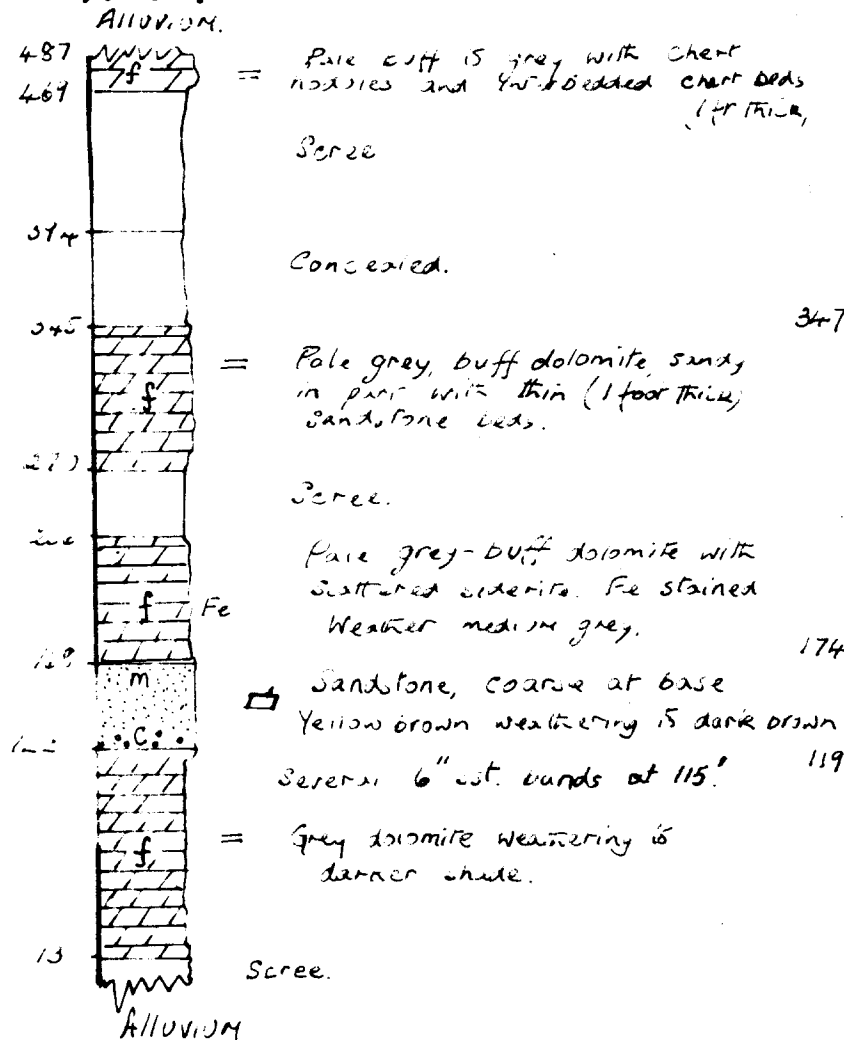 Alluvium.
487
Pale buff to grey with chert
469 f = nodules and interbedded chert beds
1 ft thick,
Scree
394
Concealed.
345
347
= Pale grey, buff dolomite, sandy
f in part with thin (1 foot thick)
Sandstone beds.
Scree.
Pale grey-buff dolomite with
f Fe scattered siderite. Fe stained
Weather medium grey.
174
m Sandstone, coarse at base
Yellow brown weathering to dark brown
C
119
Several 6" bands at 115'
f = Grey dolomite weathering to
darker shade.
13
Scree.
Alluvium